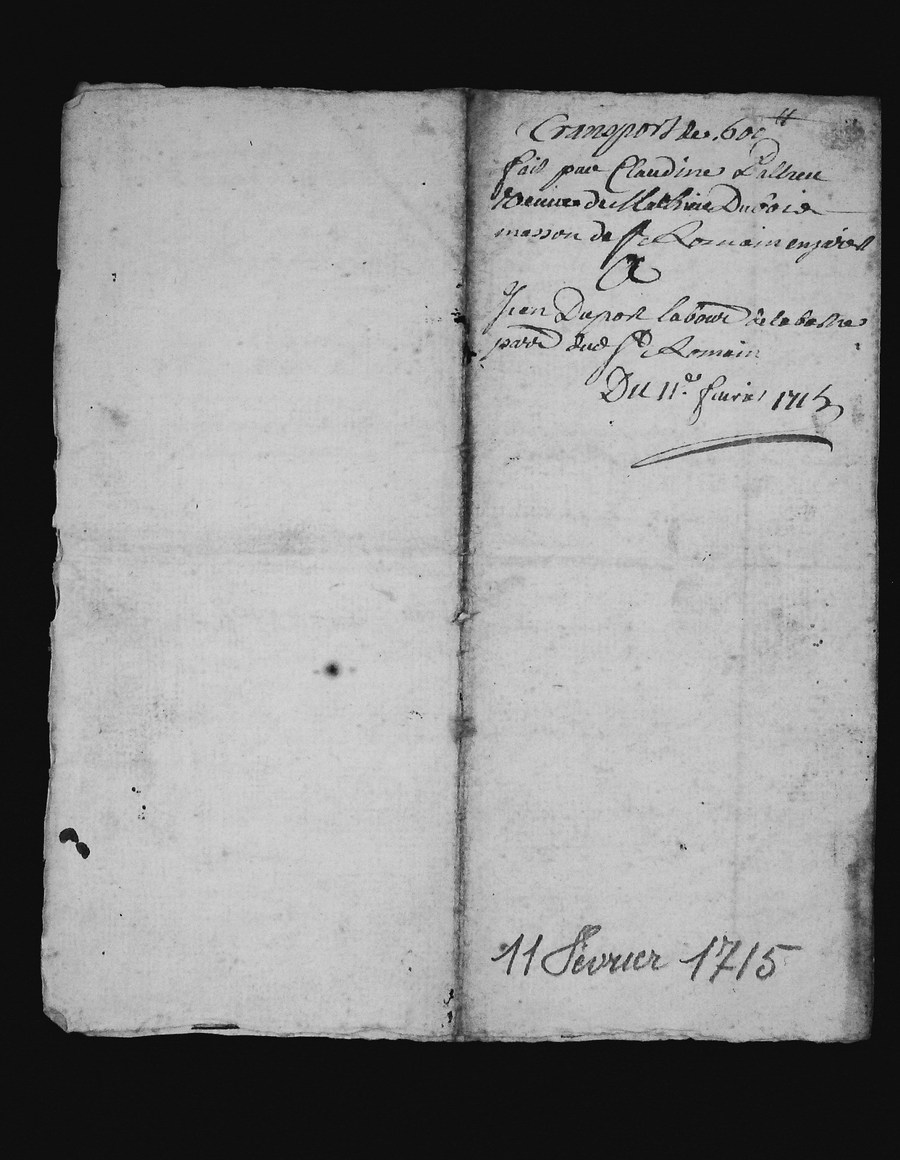 Transport de 600 ₶
fait par Claudine
veuve de Mathieu Dubois
masson de St Romain en jarest
A
Jean Duport labour de la bastie
parr dud St Romain
Du 11e feurier 1715
11 Février 1715